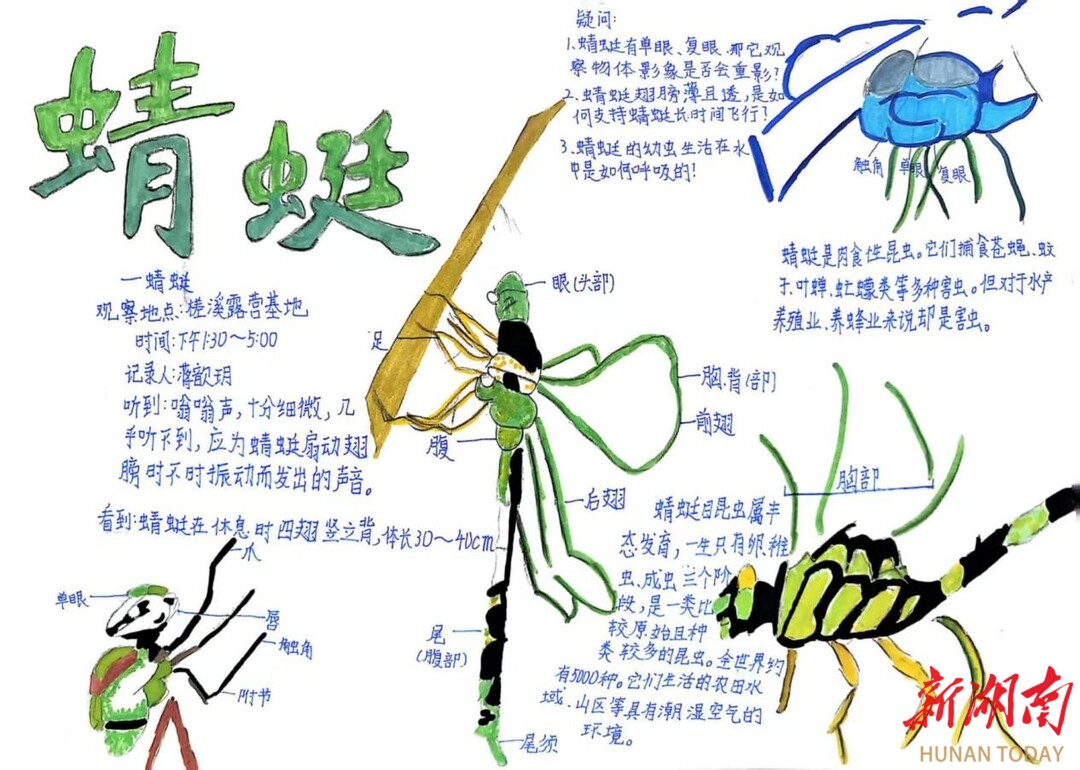 蜻蜓
一蜻蜓
观察地点:槎溪露营基地
时间:下午1:30～5:00
记录人:蒋歆玥
听到:嗡嗡声,十分细微,几
乎听不到,应为蜻蜓扇动翅
膀时不时振动而发出的声音。
看到:蜻蜓在休息时四翅竖立背,体长30～40cm
疑问:
1、蜻蜓有单眼、复眼,那它观
察物体影象是否会重影?
2、蜻蜓翅膀薄且透,是如
何支持蜻蜓长时间飞行?
3、蜻蜓的幼虫生活在水
中是如何呼吸的!
触角 单眼 复眼
蜻蜓是肉食性昆虫。它们捕食苍蝇、蚊
子、叶蝉、虻蠓类等多种害虫。但对于水产
养殖业、养蜂业来说却是害虫。
眼(头部)
足
胸.背(部)
前翅
腹
后翅
尾
(腹部)
尾须
胸部
蜻蜓目昆虫属半
态发育,一生只有卵、稚
虫、成虫三个阶
段,是一类比
较原始且种
类较多的昆虫。全世界约
有5000种。它们生活的农田水
域、山区等具有潮湿空气的
环境。
爪
单眼
唇
触角
跗节
新湖南
HUNAN TODAY